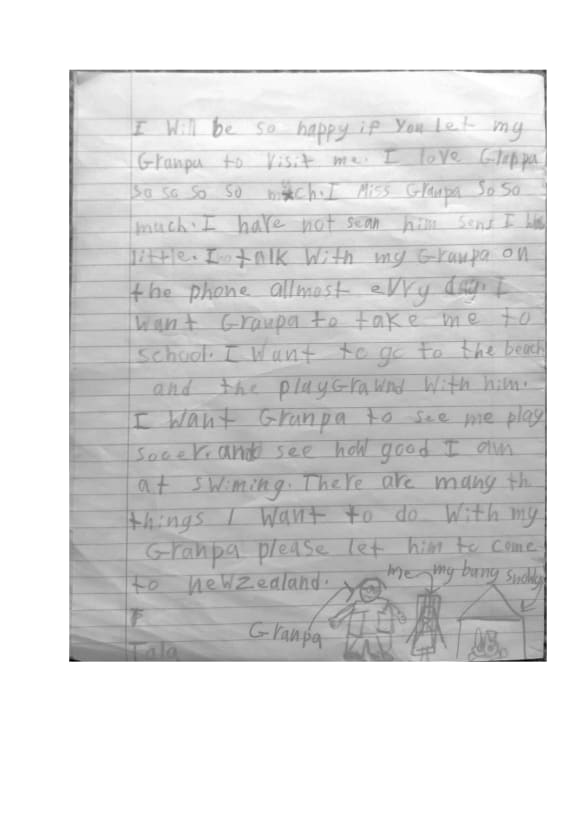 I Will be so happy if You let my
Granpa to Visit me. I love Granpa
so so so so much. I Miss Granpa So So
much. I have not sean him sens I
little. I talk With my Granpa on
the phone allmost evry day. I
Want Granpa to take me to
school. I Want to go to the beach
and the playGrawnd With him.
I Want Granpa to see me play
socer. and see how good I am
at swiming. There are many th
things I Want to do With my
Granpa please let him to come
to newzealand.
me my buny snowy
Granpa
F
Tala